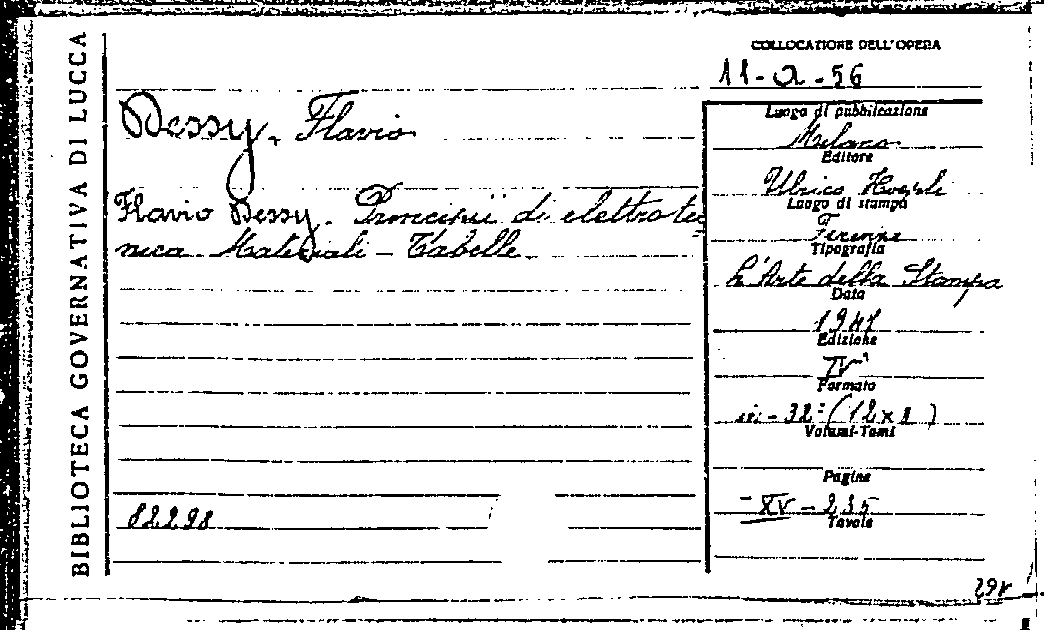 BIBLIOTECA GOVERNATIVA DI LUCCA
COLLOCATIONE DELL'OPERA
11-a-56
Dessy, Flavio
Flavio Dessy. Principii di elettrotec
nica Materiali - Tabelle
82298
Luogo di pubblicazione
Milano
Editore
Ulrico Hoepli
Luogo di stampa
Firenze
Tipografia
L'Arte della Stampa
Data
1947
Edizione
IVª
Formato
in-32º (12x8)
Volumi-Tomi
Pagine
-XV-235
Tavole